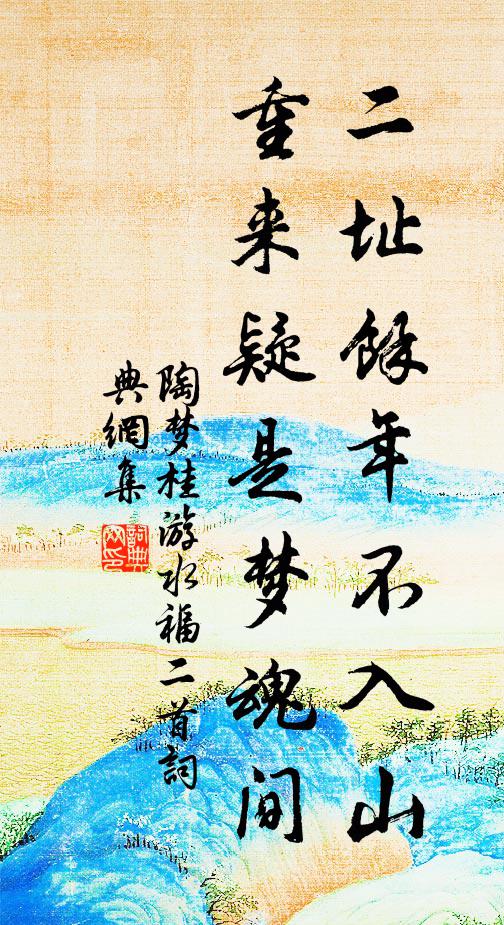 二址餘年不入山
重来疑是梦魂间
陶梦桂游水福二首詞
典網集
詞典